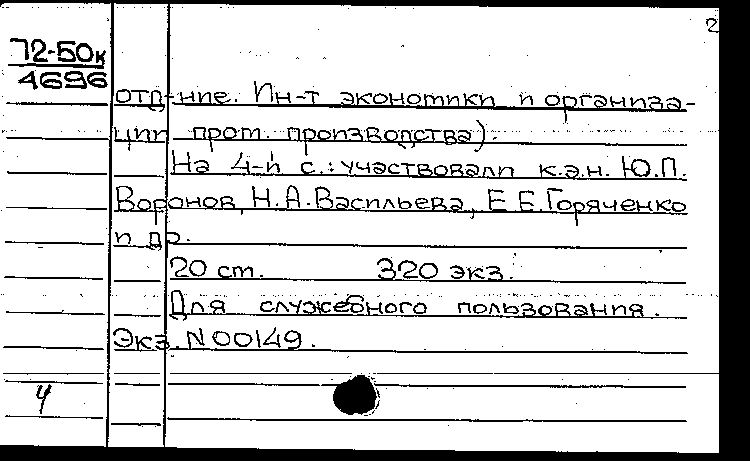 2
72-50к
4696
отд-ние. Ин-т экономики и организа-
ции пром. производства).
На 4-й с.: участвовали к.э.н. Ю.П.
Воронов, Н.А. Васильева, Е.Е. Горяченко
и др.
20 ст. 320 экз.
Для служебного пользования.
Экз. N 00149.
4